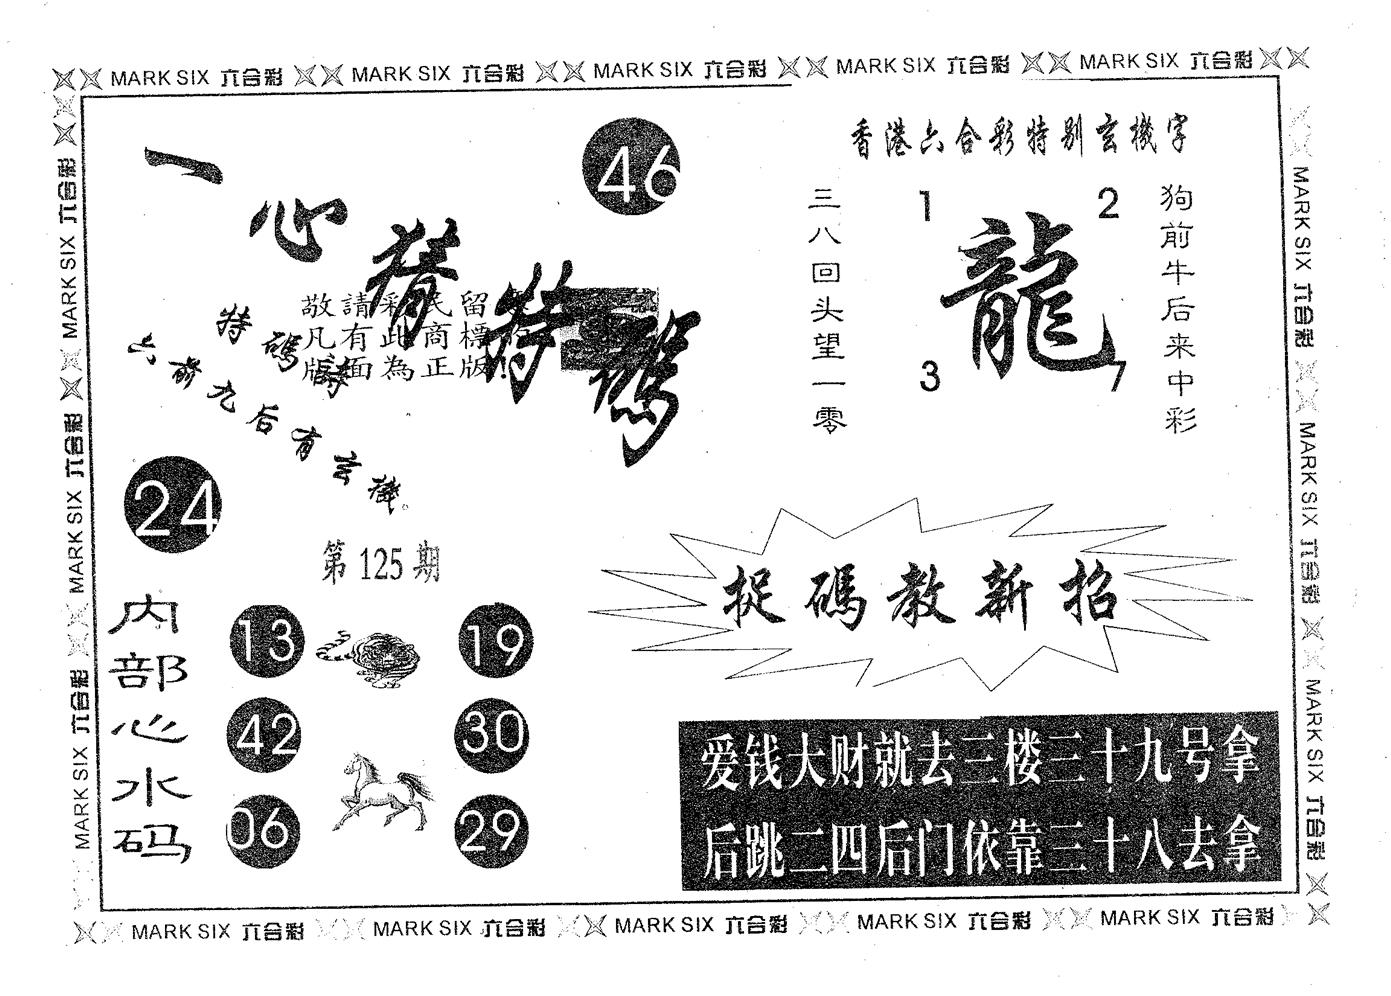 MARK SIX 六合彩 MARK SIX 六合彩 MARK SIX 六合彩 MARK SIX 六合彩 MARK SIX 六合彩
一心猜特碼
46
特碼詩
六前九后有玄機。
敬請彩民留意
凡有此商標的
版面為正版!
24
第125期
内部心水码
13 19
42 30
06 29
香港六合彩特别玄機字
三八回头望一零
1 2
龍
3 7
狗前牛后来中彩
捉碼教新招
爱钱大财就去三楼三十九号拿
后跳二四后门依靠三十八去拿
MARK SIX 六合彩 MARK SIX 六合彩 MARK SIX 六合彩
MARK SIX 六合彩 MARK SIX 六合彩 MARK SIX 六合彩
MARK SIX 六合彩 MARK SIX 六合彩 MARK SIX 六合彩 MARK SIX 六合彩 MARK SIX 六合彩